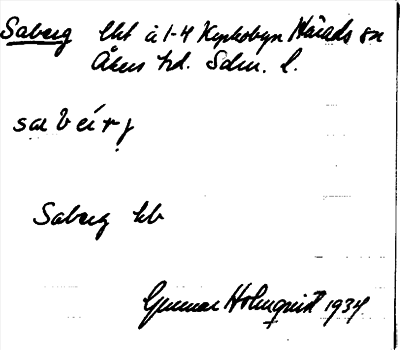 Saberg lht å 1-4 Kyrkobyn Härads sn
Åkers hd. Sdm. l.
sabeirj
Saberg kb
Gunnar Holmquist 1934